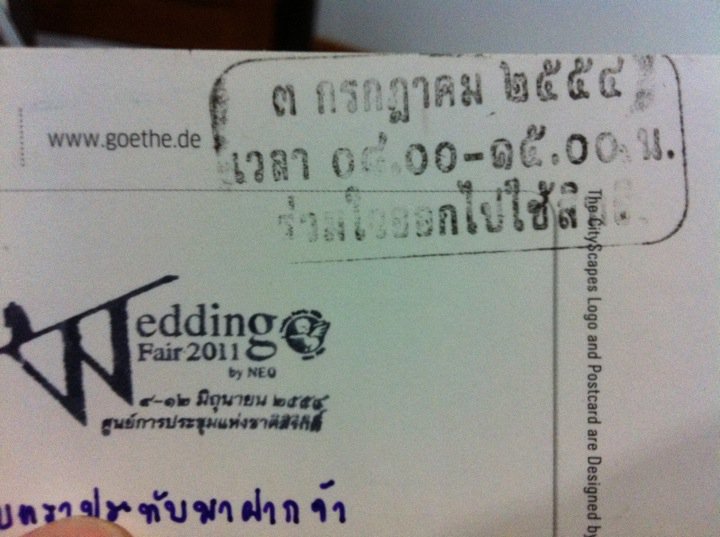 ๓ กรกฎาคม ๒๕๕๔
เวลา ๐๘.๐๐-๑๕.๐๐ น.
ร่วมใจออกไปใช้สิทธิ
www.goethe.de
Wedding
Fair 2011
by NEO
๙-๑๒ มิถุนายน ๒๕๕๔
ศูนย์การประชุมแห่งชาติสิริกิติ์
ตราประทับมาฝากจ้า
The CityScapes Logo and Postcard are Designed by